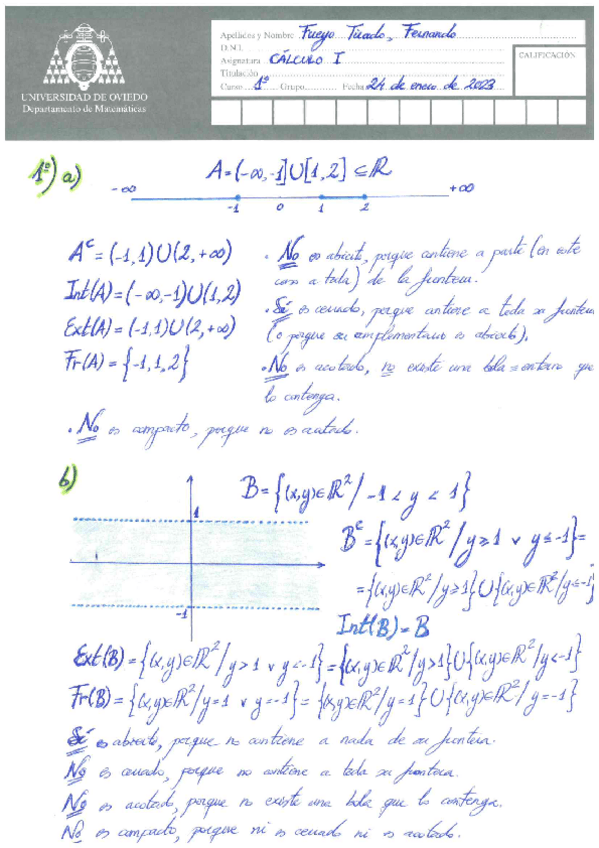 Apellidos y Nombre Fueyo Tirado, Fernando
D.N.I.
Asignatura CÁLCULO I
CALIFICACIÓN
Titulación
Curso 1º Grupo Fecha 24 de enero de 2023
UNIVERSIDAD DE OVIEDO
Departamento de Matemáticas
1º) a) A=(-∞,-1]∪[1,2] ⊆ℝ
-∞ +∞
-1 0 1 2
A^c = (-1,1)∪(2,+∞)
Int(A)=(-∞,-1)∪(1,2)
Ext(A)=(-1,1)∪(2,+∞)
Fr(A)={-1,1,2}
· No es abierto, porque contiene a parte (en este
caso a toda) de la frontera.
· Sí es cerrado, porque contiene a toda su frontera
(o porque su complementario es abierto).
· No es acotado, no existe una bola = entorno que
lo contenga.
· No es compacto, porque no es acotado.
b) B={(x,y)∈ℝ²/ -1 < y < 1}
1
-1
B^c={(x,y)∈ℝ²/ y≥1 ∨ y≤-1}=
={(x,y)∈ℝ²/ y≥1}∪{(x,y)∈ℝ²/ y≤-1}
Int(B)=B
Ext(B)={(x,y)∈ℝ²/ y>1 ∨ y<-1}={(x,y)∈ℝ²/ y>1}∪{(x,y)∈ℝ²/ y<-1}
Fr(B)={(x,y)∈ℝ²/ y=1 ∨ y=-1}={(x,y)∈ℝ²/ y=1}∪{(x,y)∈ℝ²/ y=-1}
Sí es abierto, porque no contiene a nada de su frontera.
No es cerrado, porque no contiene a toda su frontera.
No es acotado, porque no existe una bola que lo contenga.
No es compacto, porque ni es cerrado ni es acotado.